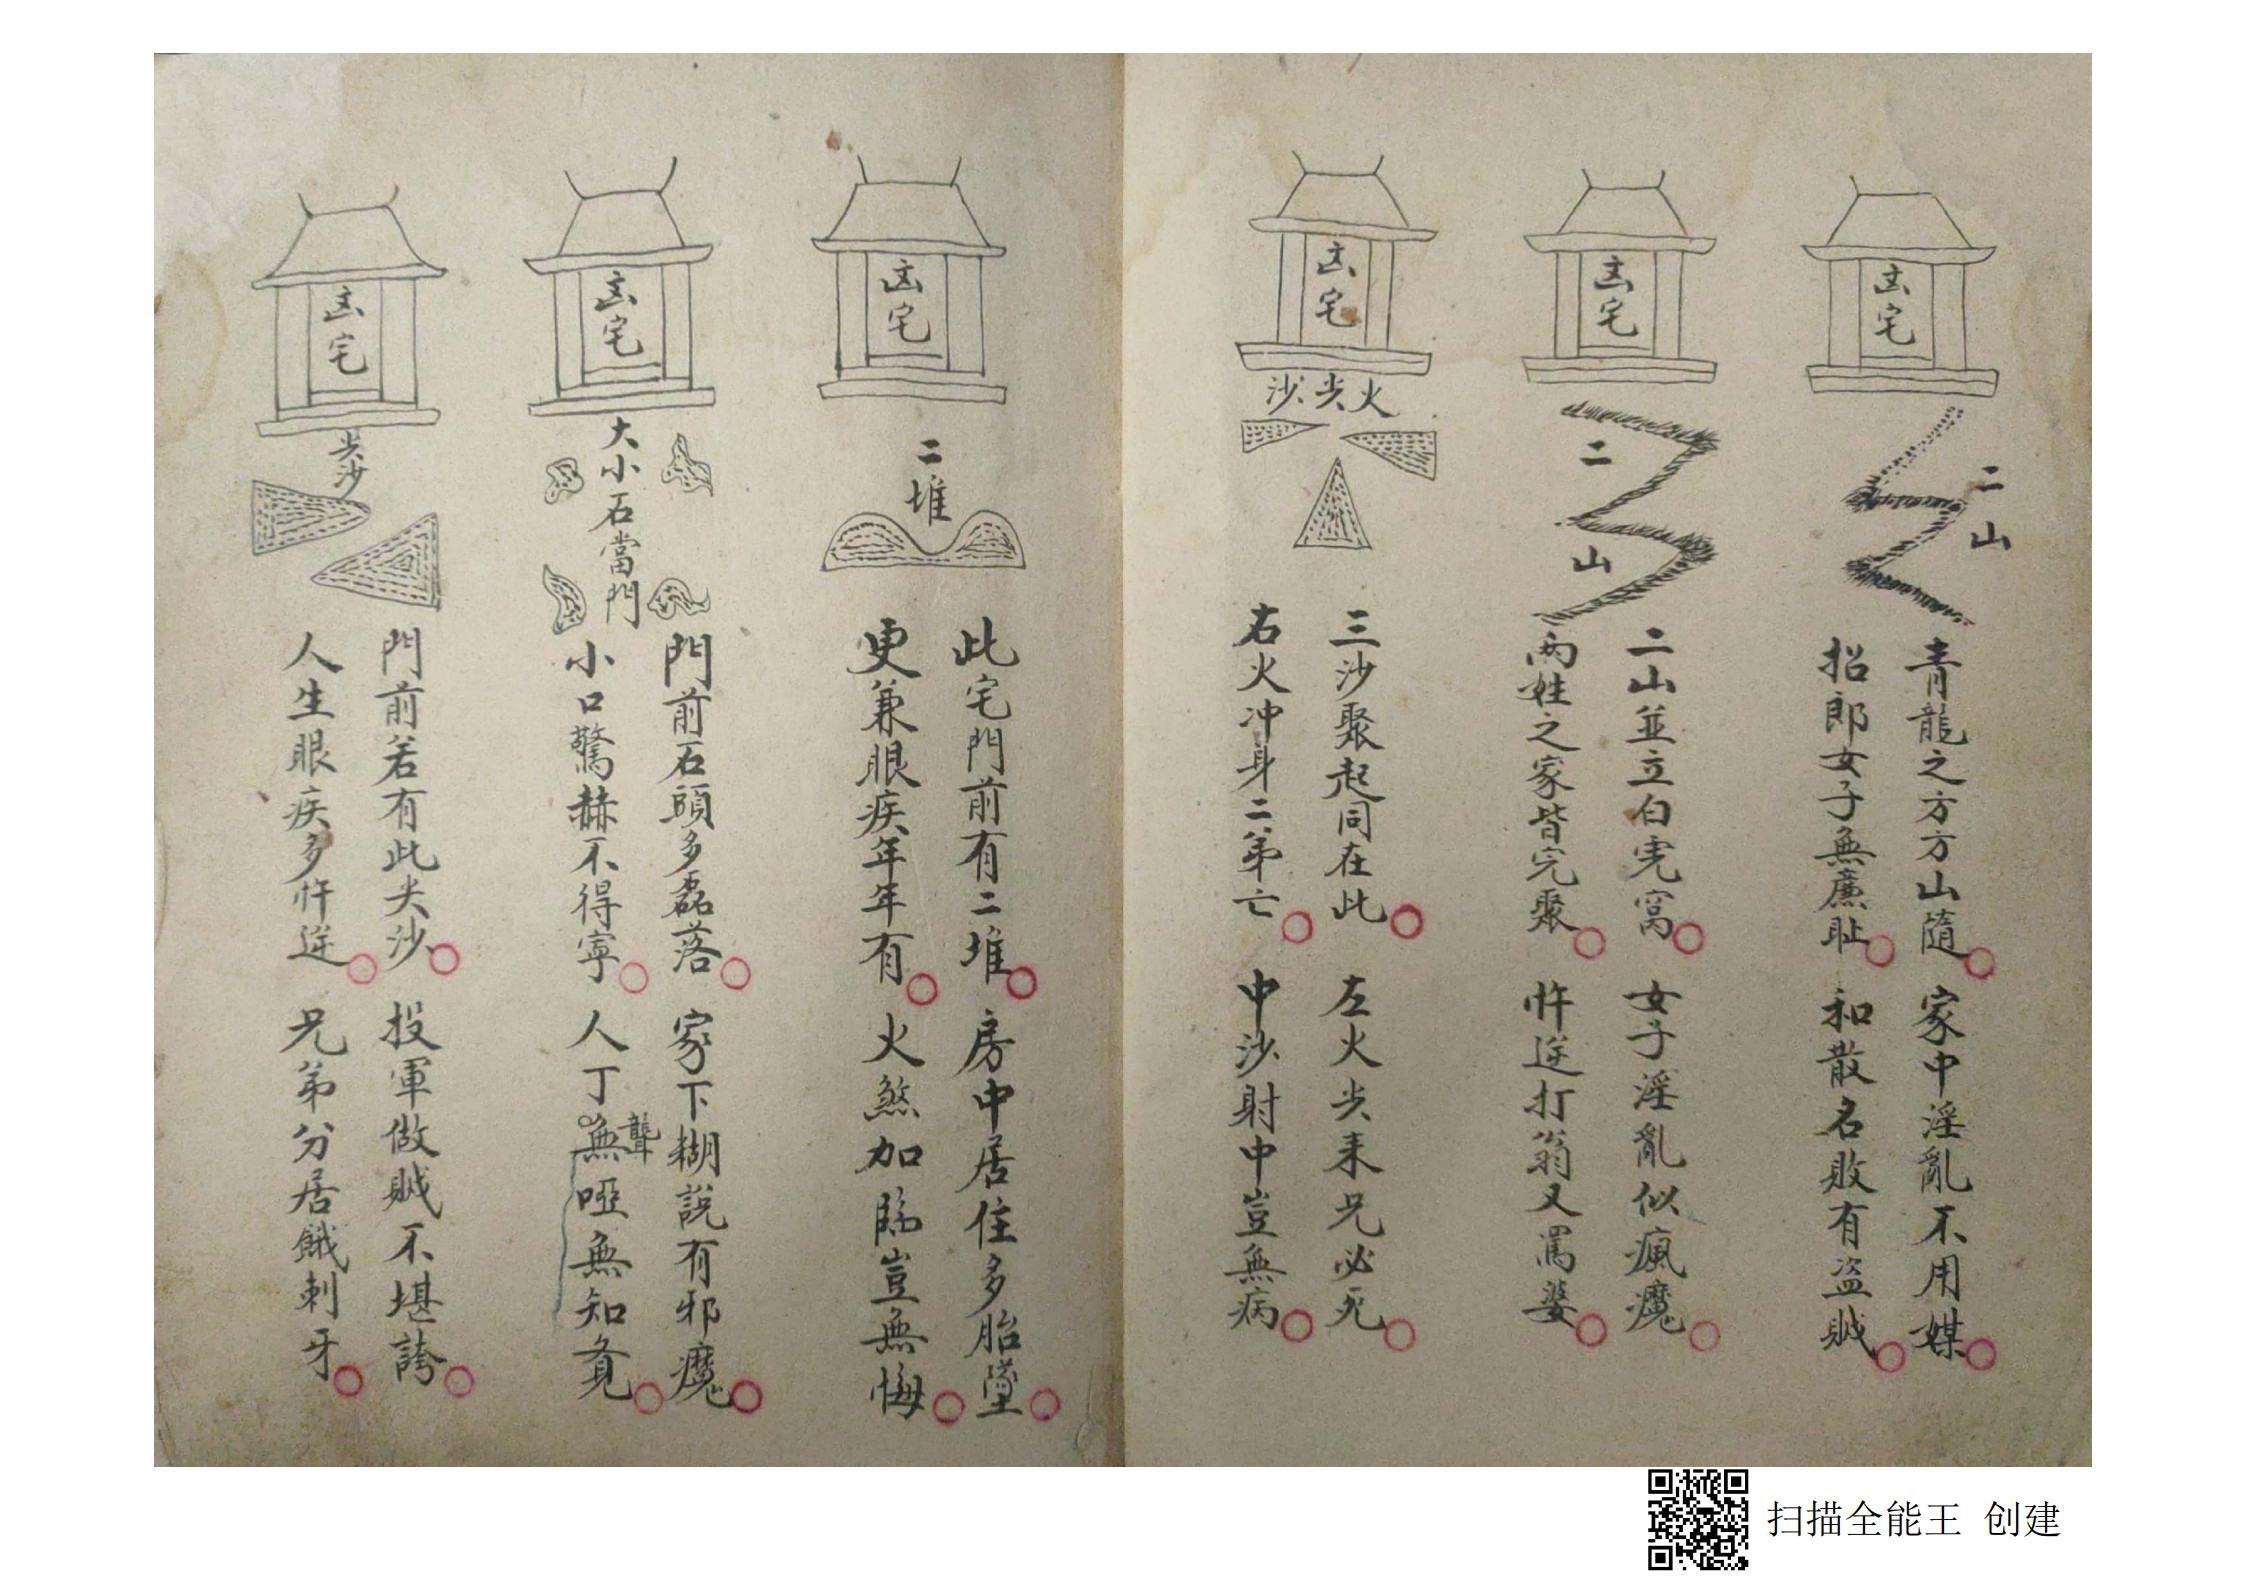 凶宅
二山
青龍之方方山隨
家中淫亂不用媒
招郎女子無廉耻
和散名敗有盗贼
凶宅
二山
二山並立白虎窝
女子淫亂似瘋魔
两姓之家皆完聚
忤逆打翁又罵婆
凶宅
火尖沙
三沙聚起同在此
左火尖来兄必死
右火冲身二弟亡
中沙射中豈無病
凶宅
二堆
此宅門前有二堆
房中居住多胎墜
更兼眼疾年年有
火煞加臨豈無悔
凶宅
大小石當門
門前石頭多磊落
家下糊説有邪魔
小口驚赫不得寧
人丁無聾啞無知覓
凶宅
尖沙
門前若有此尖沙
投軍做贼不堪誇
人生眼疾多忤逆
兄弟分居餓刺牙
扫描全能王 创建